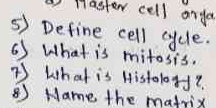 Master cell orga
5) Define cell cycle.
6) What is mitosis.
7) What is Histology?
8) Name the matrix